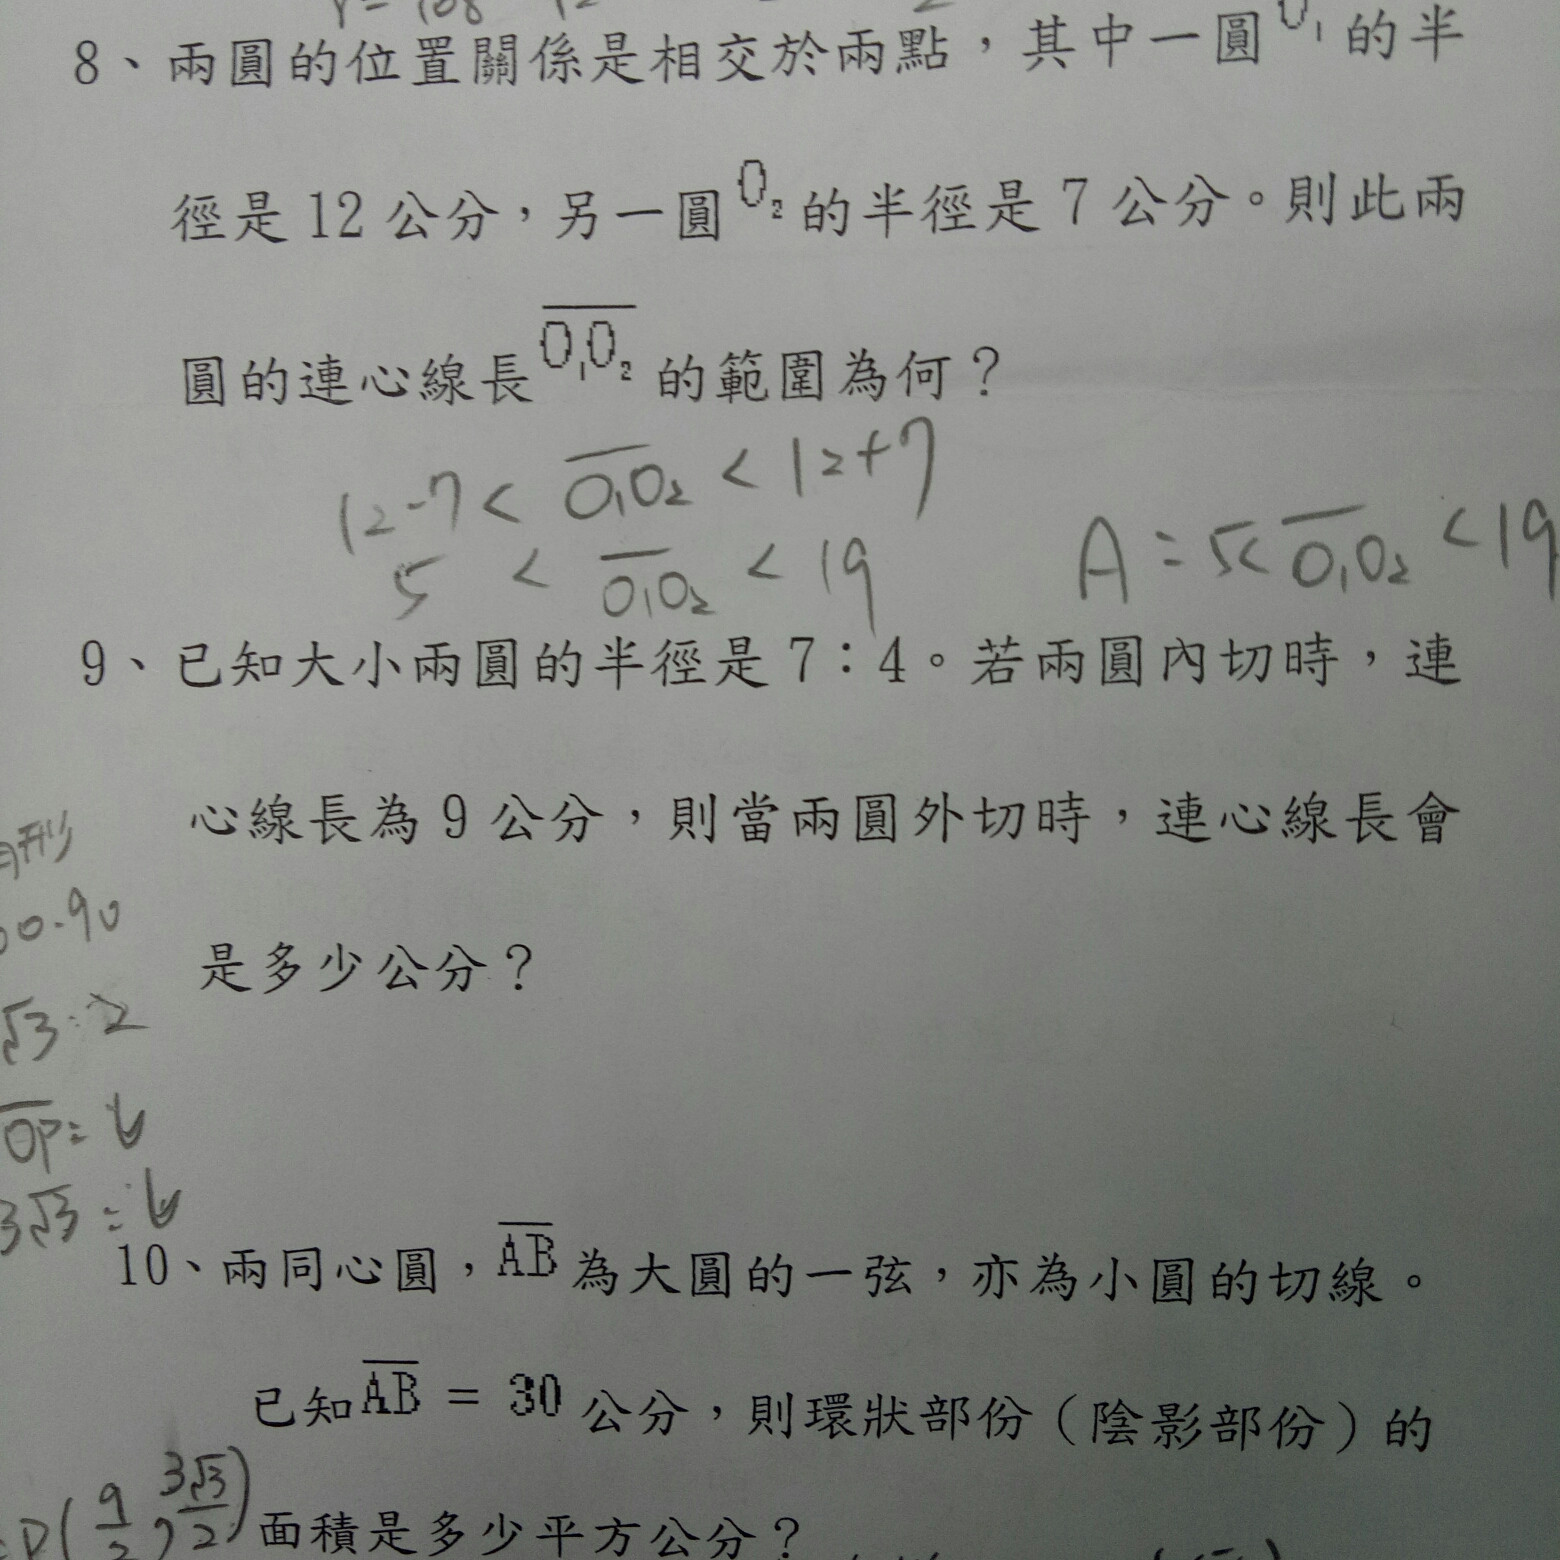 8、兩圓的位置關係是相交於兩點，其中一圓O₁的半
徑是12公分，另一圓O₂的半徑是7公分。則此兩
圓的連心線長O₁O₂的範圍為何？
12-7<O₁O₂<12+7
5<O₁O₂<19
A=5<O₁O₂<19
9、已知大小兩圓的半徑是7：4。若兩圓內切時，連
心線長為9公分，則當兩圓外切時，連心線長會
是多少公分？
√3:2
OP=6
3√3=6
10、兩同心圓，AB為大圓的一弦，亦為小圓的切線。
已知AB=30公分，則環狀部份（陰影部份）的
P(9/2,3√3/2)
面積是多少平方公分？